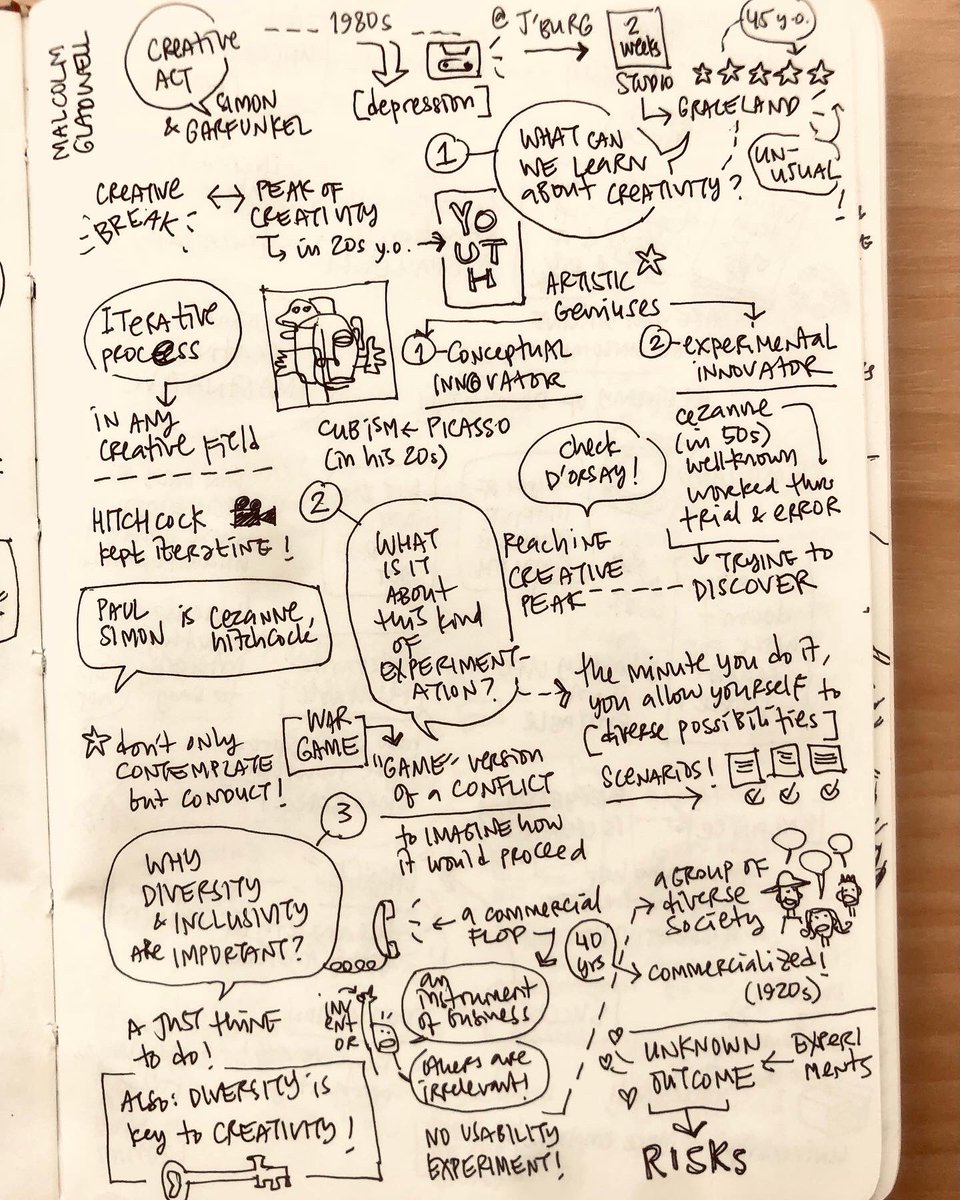 MALCOLM
GLADWELL
CREATIVE
ACT
SIMON
& GARFUNKEL
1980s
[depression]
@ J'BURG
2
weeks
STUDIO
45 y.o.
GRACELAND
UN-
USUAL
1
WHAT CAN
WE LEARN
about CREATIVITY?
CREATIVE
BREAK
PEAK OF
CREATIVITY
in 20s y.o.
YO
UT
H
ARTISTIC
Geniuses
1 CONCEPTUAL
INNOVATOR
CUBISM ← PICASSO
(in his 20s)
2 - experimental
INNOVATOR
cezanne
(in 50s)
wellknown
worked thru
trial & error
TRYING to
DISCOVER
check
D'ORSAY!
Reaching
CREATIVE
PEAK
ITERATIVE
process
in any
creative field
HITCHCOCK
kept iterating!
PAUL
SIMON is cezanne,
hitchcock
2
WHAT
IS IT
ABOUT
this kind
OF
EXPERIMENT-
ATION?
the minute you do it,
you allow yourself to
[diverse possibilities]
don't only
CONTEMPLATE
but CONDUCT!
WAR
GAME
"GAME" version
of a CONFLICT
to IMAGINE how
it would proceed
SCENARIOS!
3
WHY
DIVERSITY
& INCLUSIVITY
ARE IMPORTANT?
A JUST THING
to do!
ALSO: DIVERSITY is
key to CREATIVITY!
a commercial
FLOP
INV
ENT
OR
an
instrument
of business
others are
irrelevant!
NO USABILITY
EXPERIMENT!
40
yrs
a GROUP OF
diverse
society
commercialized!
(1920s)
UNKNOWN
OUTCOME
EXPERI
MENTS
RISKS